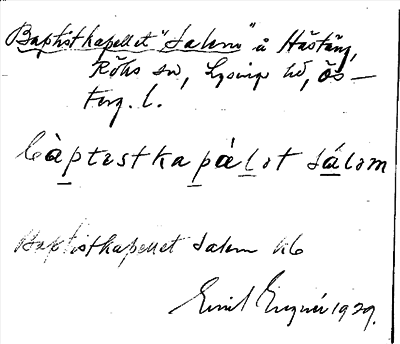 Baptistkapellet "Salem" å Hästäng,
Röks sn, Lysings hd, Ös-
terg. l.
bàptestkapálot sálom
Baptistkapellet Salem
Emil 1929.